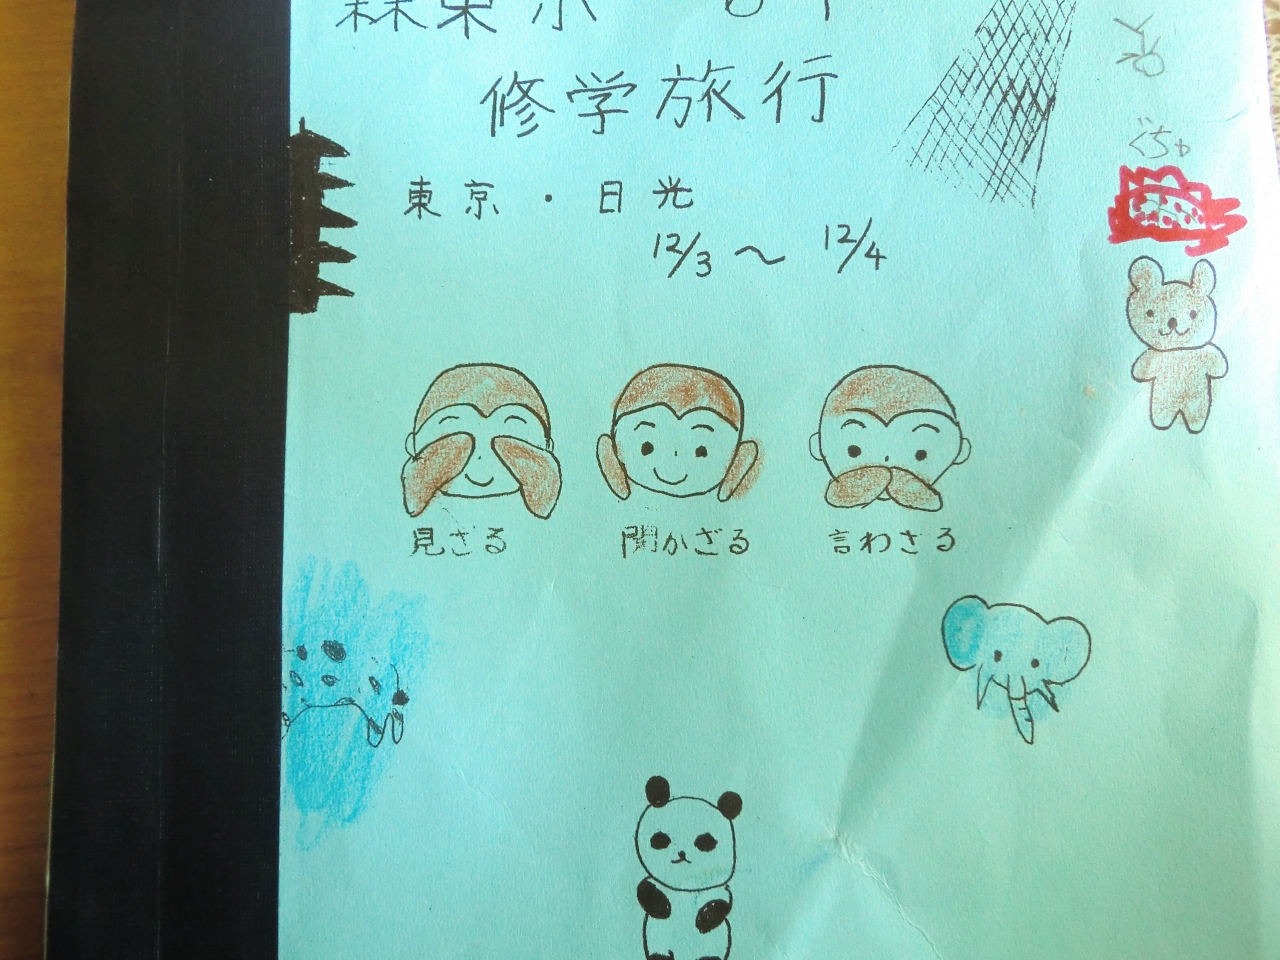 修学旅行
東京・日光
12/3～12/4
ぐちゃ
見ざる 聞かざる 言わざる